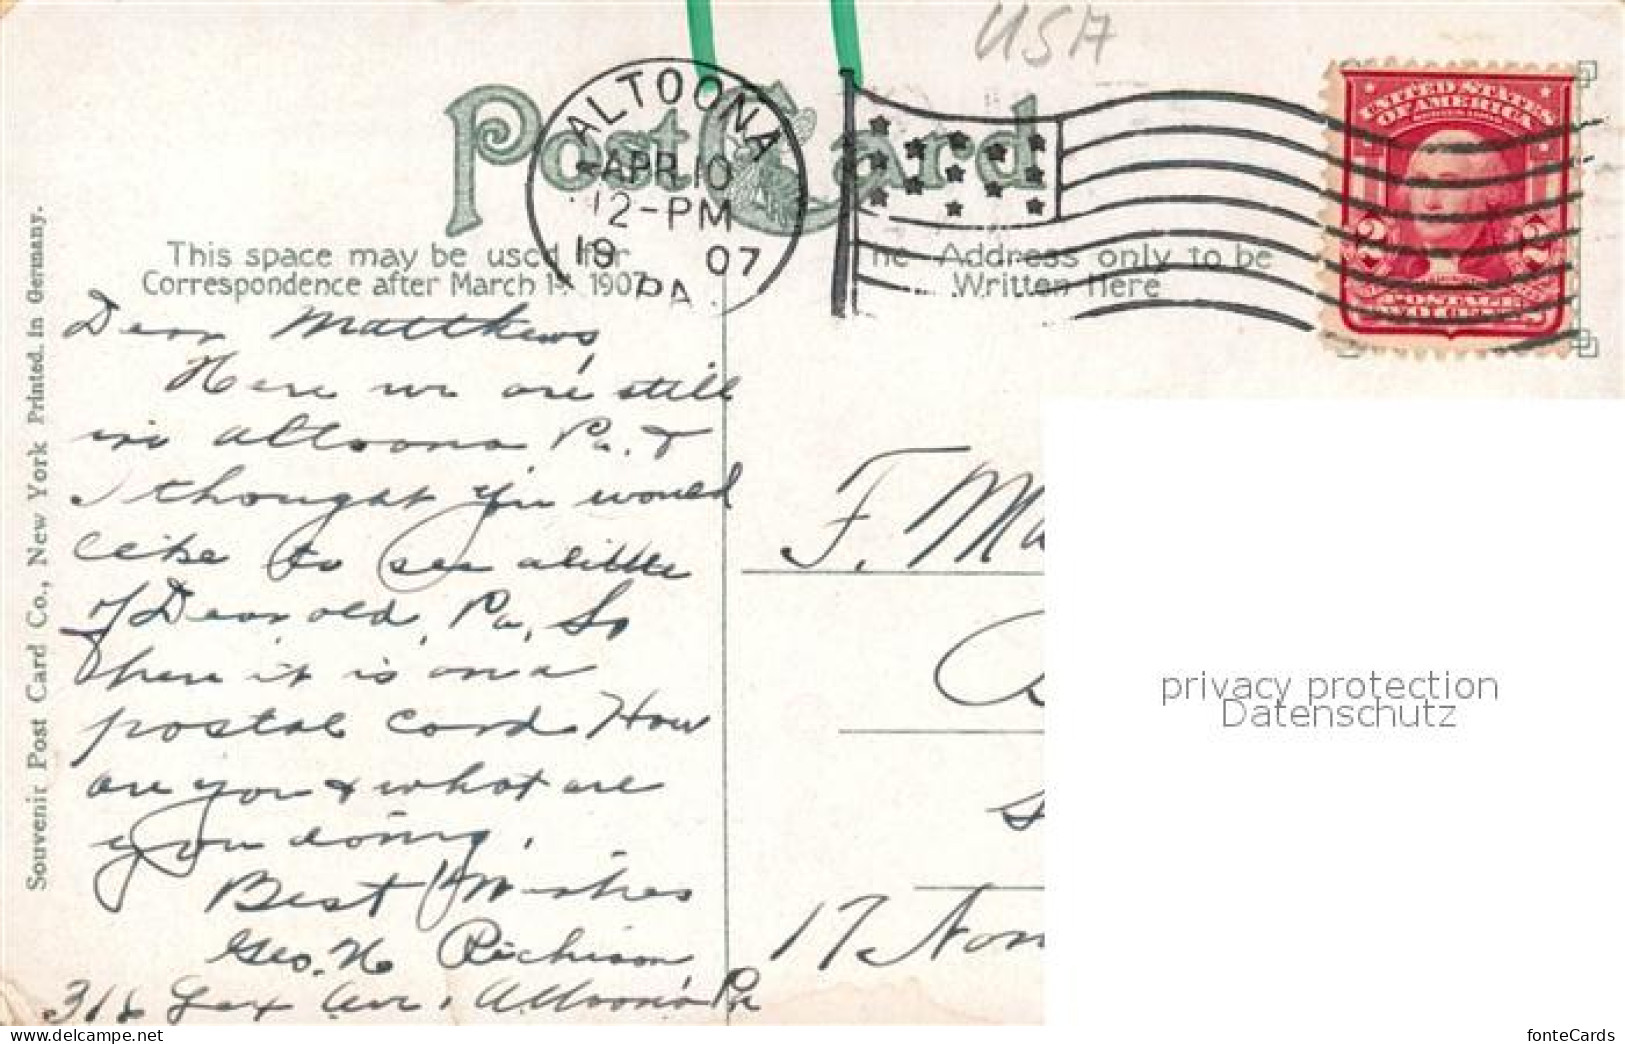 USA
Post Card
ALTOONA
APR 10
12-PM
19 07
PA.
UNITED STATES
OF AMERICA
2 2
POSTAGE
This space may be used for
Correspondence after March 1st 1907
The Address only to be
Written Here
Souvenir Post Card Co., New York Printed. in Germany.
Dear Matthews,
Here we are still
in Altoona Pa. &
I thought you would
like to see a little
of Dear old Pa, So
here it is on a
postal card How
are you & what are
you doing.
Best Wishes
Geo. H Richison
Ave. Altoona Pa
F. Ma
17 Nor
privacy protection
Datenschutz
fonteCards